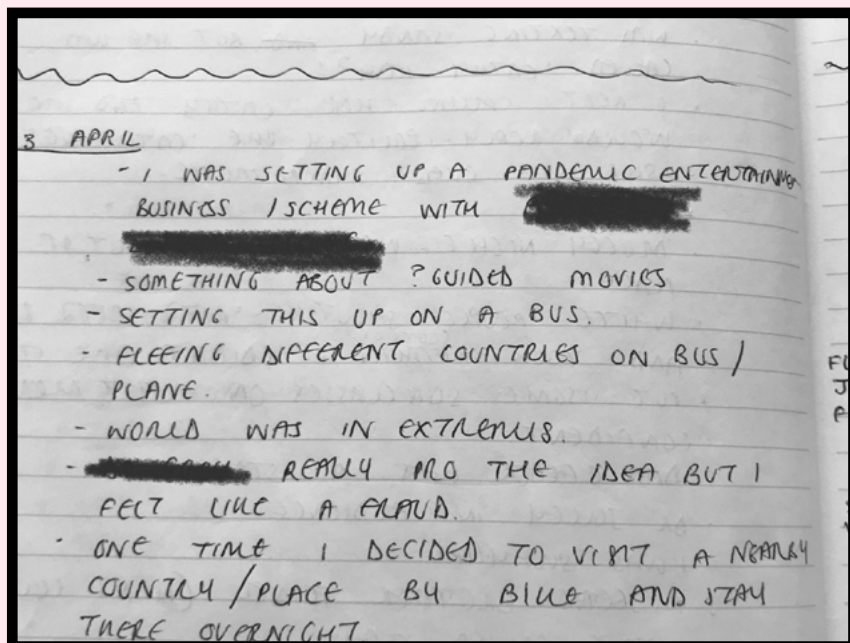 3 APRIL
- I WAS SETTING UP A PANDEMIC ENTERTAINME
BUSINESS / SCHEME WITH
- SOMETHING ABOUT ? GUIDED MOVIES
- SETTING THIS UP ON A BUS.
- FLEEING DIFFERENT COUNTRIES ON BUS /
PLANE.
- WORLD WAS IN EXTREMIS
- REALLY PRO THE IDEA BUT I
FELT LIKE A FRAUD.
- ONE TIME I DECIDED TO VISIT A NEARBY
COUNTRY / PLACE BY BIKE AND STAY
THERE OVERNIGHT